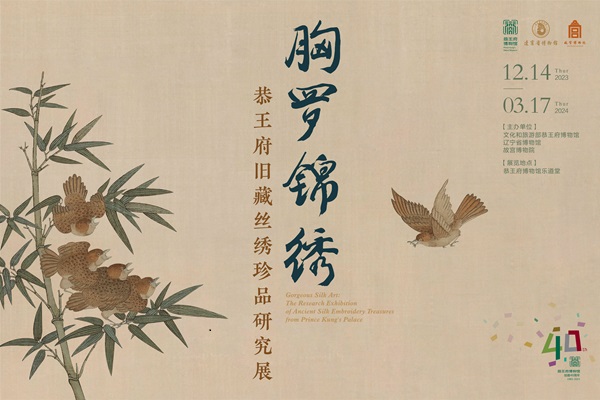 胸罗锦绣
恭王府旧藏丝绣珍品研究展
Gorgeous Silk Art:
The Research Exhibition
of Ancient Silk Embroidery Treasures
from Prince Kung's Palace
恭王府
博物馆
辽宁省博物馆
故宫博物院
12.14 Thur 2023
03.17 Thur 2024
【主办单位】
文化和旅游部恭王府博物馆
辽宁省博物馆
故宫博物院
【展览地点】
恭王府博物馆乐道堂
40
恭王府博物馆